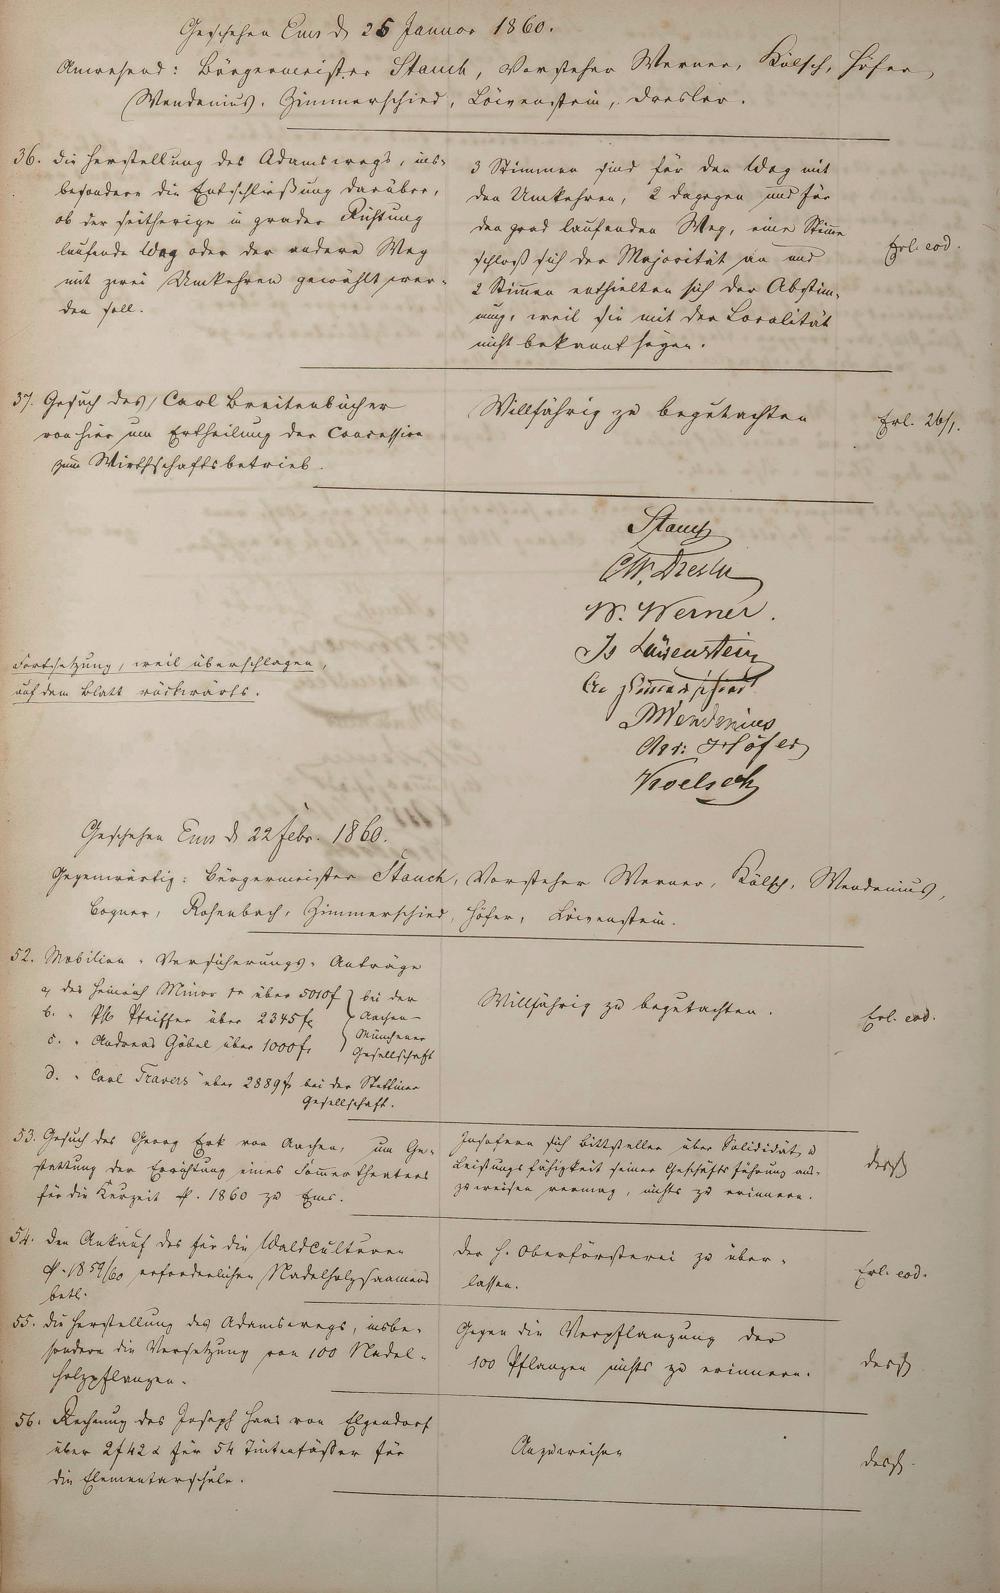 Geschehen Ems d 25 Januar 1860.
Anwesend: Bürgermeister Stauch, Vorsteher Werner, Kölsch, Höfer,
Wendenius, Zimmerschied, Löwenstein, Dresler.
36. Die Herstellung des Adamswegs, ins-
besondere die Entschließung darüber,
ob der seitherige in grader Richtung
laufende Weg oder der andere Weg
mit zwei Umkehren gewählt wer-
den soll.
3 Stimmen sind für den Weg mit
den Umkehren, 2 dagegen und für
den grad laufenden Weg, eine Stimme
schloß sich der Majorität an und
2 Stimmen enthielten sich der Abstim-
mung, weil sie mit der Localität
nicht bekannt seyen.
Erl. eod.
37. Gesuch des Carl Breitenbücher
von hier um Ertheilung der Concession
zum Wirthschaftsbetrieb.
Willfährig zu begutachten
Erl. 26/1.
Stauch
CW. Dresler
W. Werner.
Is Löwenstein
Zimmerschied
Wendenius
Höfer
Koelsch
Fortsetzung, weil überschlagen,
auf dem Blatt rückwärts.
Geschehen Ems d 22 Febr. 1860.
Gegenwärtig: Bürgermeister Stauch, Vorsteher Werner, Kölsch, Wendenius,
Bogner, Rosenbach, Zimmerschied, Höfer, Löwenstein.
52. Mobilien-Versicherungs-Anträge
a, des Heinrich Minor über 5010 f
b. " Ph Pfeiffer über 2345 f
c. " Andreas Göbel über 1000 f.
bei der
Aachen-
Münchener
Gesellschaft
d. " Carl Travers über 2889 f bei der Stettiner
Gesellschaft.
Willfährig zu begutachten.
Erl. eod.
53. Gesuch des Georg Erk von Aachen, um Ge-
stattung der Errichtung eines Sommertheaters
für die Kurzeit p. 1860 zu Ems.
Insofern sich Bittsteller über Solididät u
Leistungsfähigkeit seiner Geschäftsführung aus-
zuweisen vermag, nichts zu erinnern.
dess
54. Den Ankauf des für die Waldculturen
p. 1859/60 erforderlichen Nadelholzsaamens
betr.
Der H. Oberförsterei zu über-
lassen.
Erl. eod.
55. Die Herstellung des Adamswegs, insbe-
sondere die Versetzung von 100 Nadel-
holzpflanzen.
Gegen die Verpflanzung der
100 Pflanzen nichts zu erinnern.
dess
56. Rechnung des Joseph Haas von Elgendorf
über 2 f 42 x für 54 Tintenfässer für
die Elementarschule.
Anzuweisen
dess.